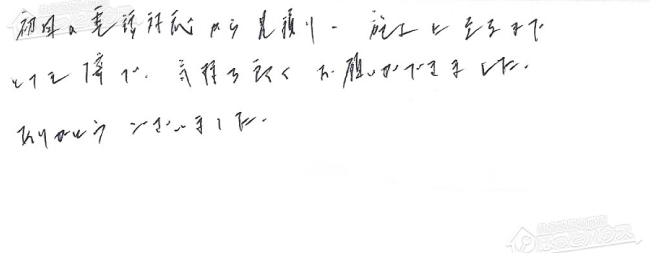 初回の電話対応から見積り、施工に至るまで
とても丁寧で、気持ち良くお願いができました。
ありがとうございました。